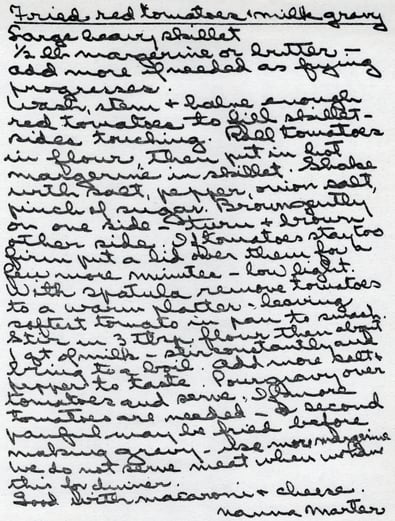 Fried red tomatoes & milk gravy
Large heavy skillet
1/2 lb margerine or butter -
add more if needed as frying
progresses.
Wash, stem + halve enough
red tomatoes to fill skillet -
sides touching. Roll tomatoes
in flour, then put in hot
margerine in skillet. Shake
with salt, pepper, onion salt,
pinch of sugar. Brown gently
on one side - turn + brown
other side. If tomatoes stay too
firm put a lid over them for a
few more minutes - low light.
With spatula remove tomatoes
to a warm platter - leaving
softest tomato in pan to
Stir in 3 tbsp. flour then about
1 qt of milk - stir constantly and
bring to a boil. Add more salt +
pepper to taste. Pour gravy over
tomatoes and serve. If more
tomatoes are needed - a second
panful may be fried before
making gravy - use more margerine
We do not serve meat when we have
this for dinner.
Good with macaroni + cheese.
nanna marter